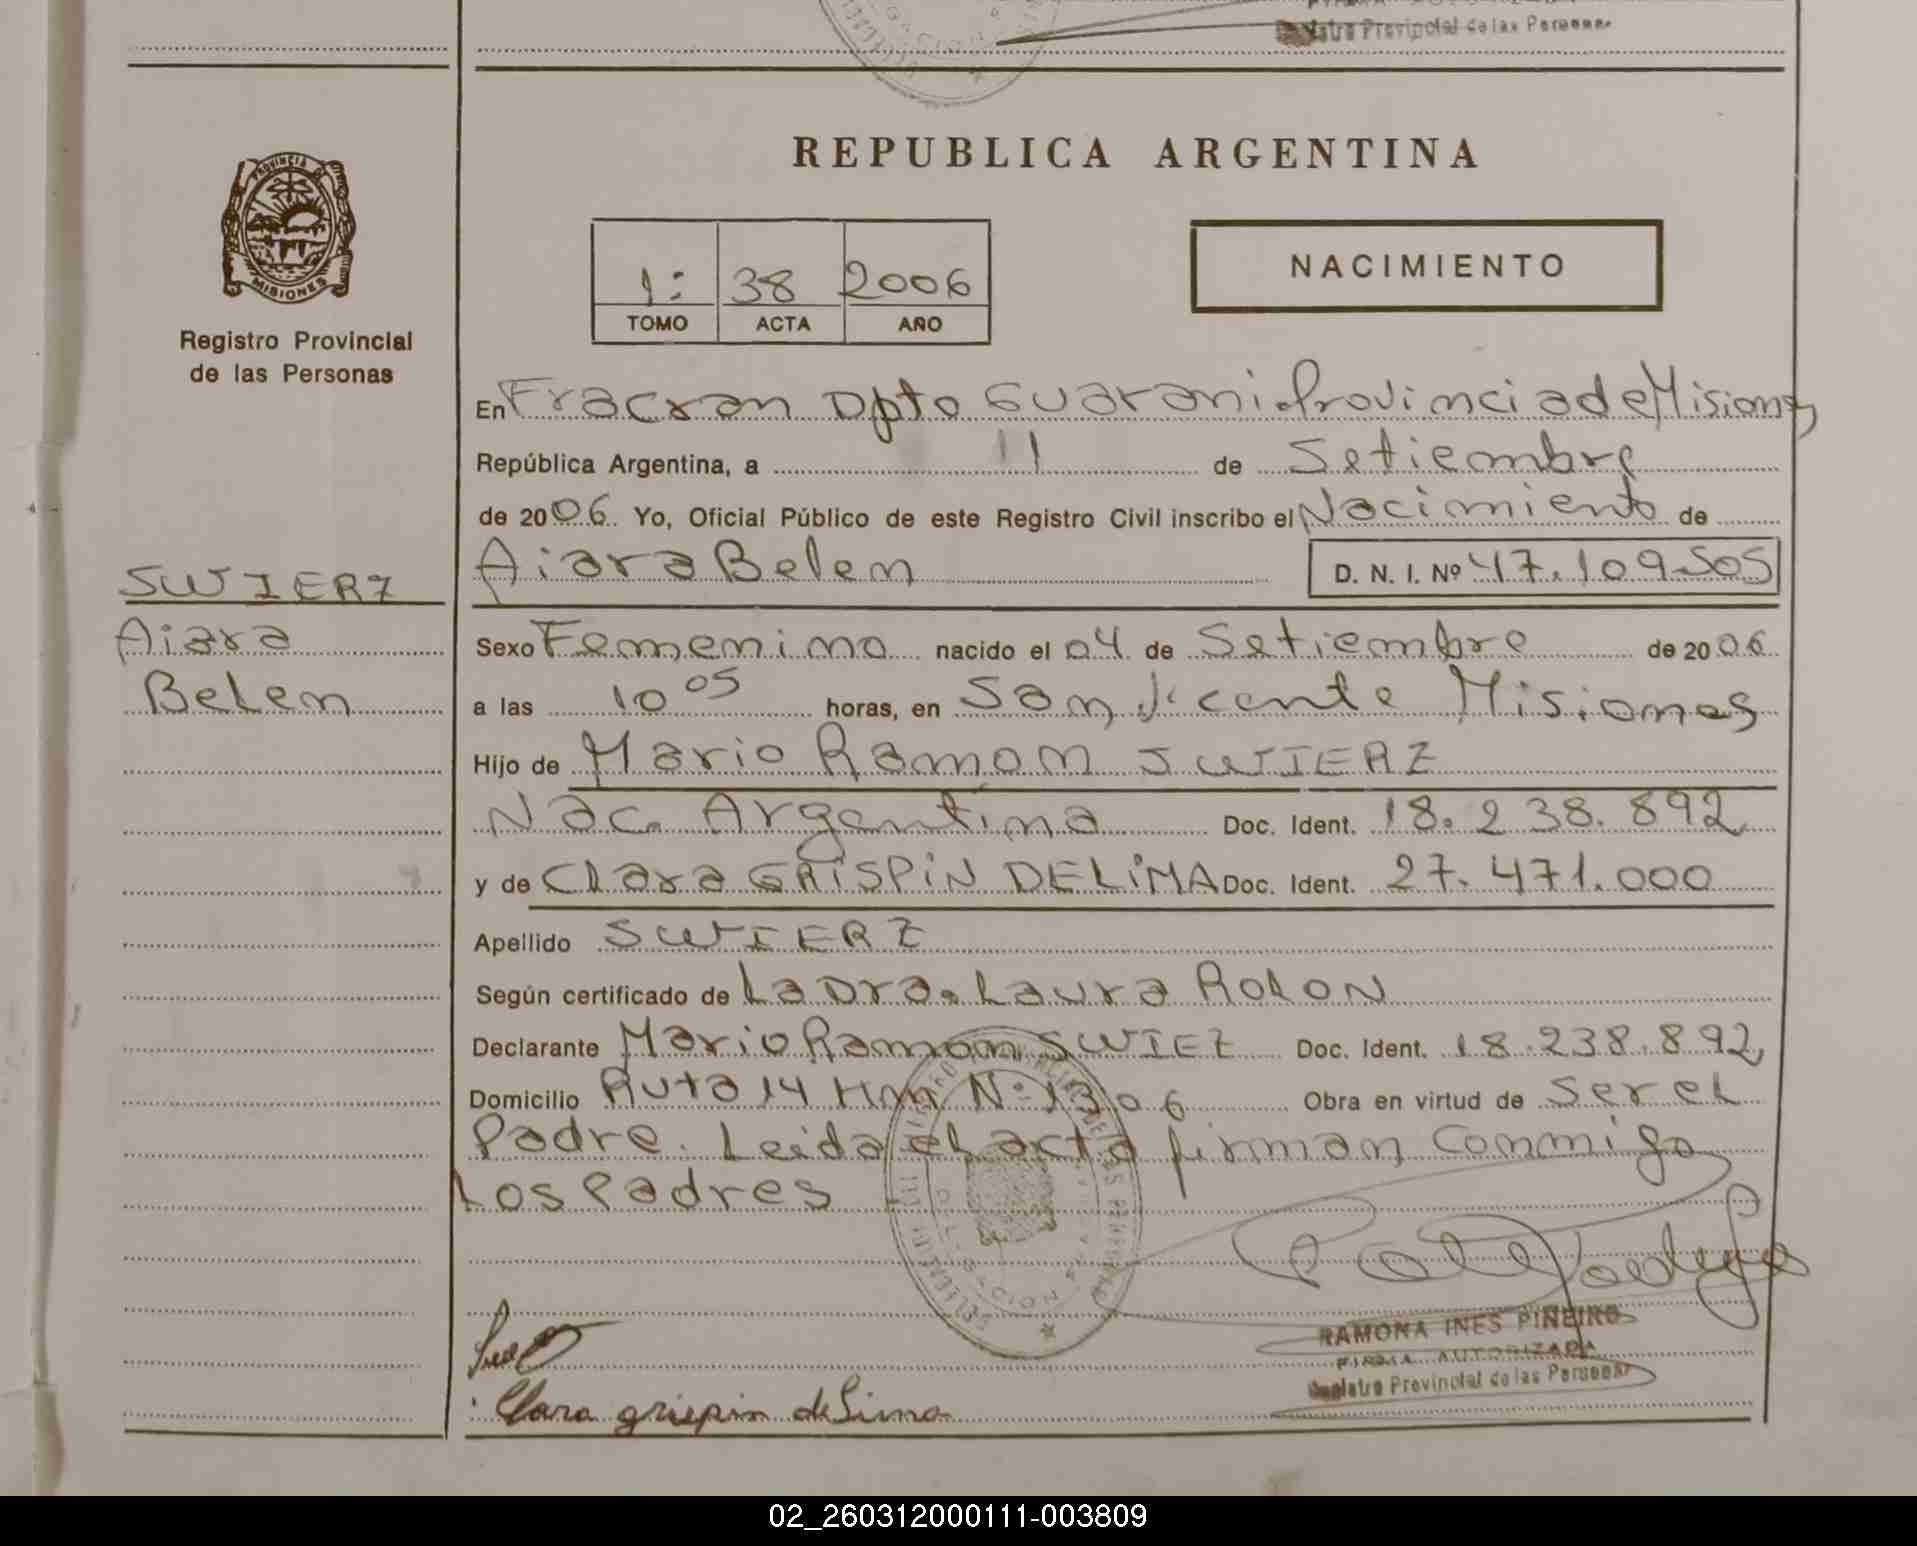 Registro Provincial de las Personas
REPUBLICA ARGENTINA
PROVINCIA
MISIONES
Registro Provincial
de las Personas
1: 38 2006
TOMO ACTA AÑO
NACIMIENTO
En Fracran Dpto Guarani Provincia de Misiones
República Argentina, a 11 de Setiembre
de 2006 Yo, Oficial Público de este Registro Civil inscribo el Nacimiento de
Aiara Belen D. N. I. Nº 47.109.505
SWIERZ
Aiara
Belen
Sexo Femenino nacido el 04 de Setiembre de 2006
a las 10 05 horas, en San Vicente Misiones
Hijo de Mario Ramon SWIERZ
Nac. Argentina Doc. Ident. 18.238.892
y de Clara GRISPIN DE LIMA Doc. Ident. 27.471.000
Apellido SWIERZ
Según certificado de La Dra. Laura ROLON
Declarante Mario Ramon SWIEZ Doc. Ident. 18.238.892
Domicilio Ruta 14 Km Nº 1306 Obra en virtud de ser el
Padre. Leida el acta firman conmigo
Los Padres
RAMONA INES PIÑEIRO
FIRMA AUTORIZADA
Registro Provincial de las Personas
Clara grispin de Lima
02_260312000111-003809